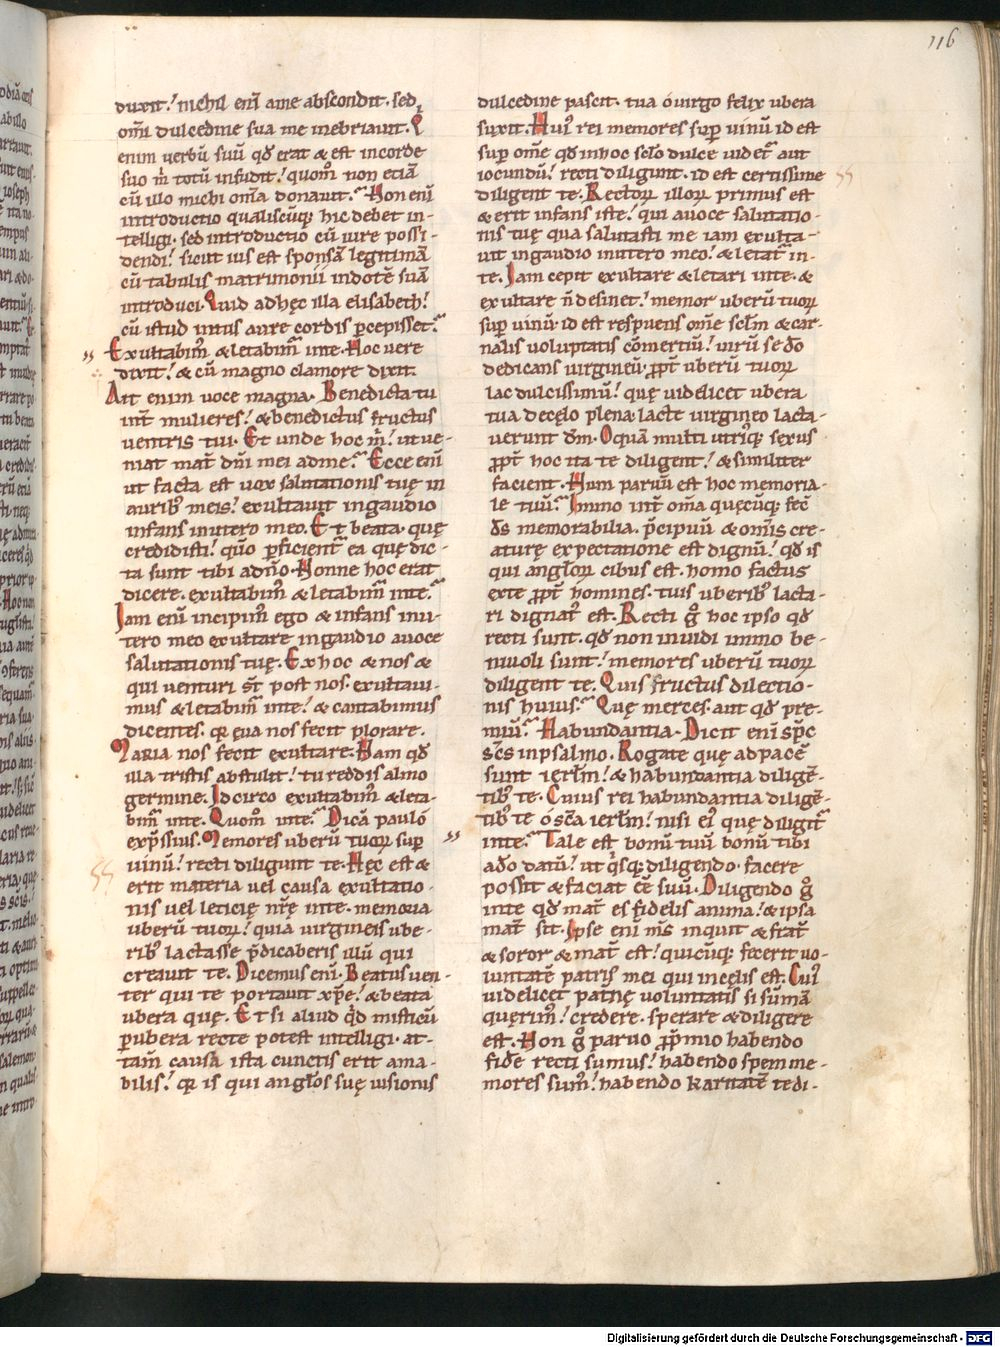 116
duxit! nichil enī a me abscondit. sed
omī dulcedine sua me inebriauit. Q
enim uerbū suū qđ erat & est in corde
suo m̄ totū infudit! quom̄ non etiā
cū illo michi om̄a donauit? Non enī
introductio qualiscūq; hic debet in-
telligi. sed introductio cū iure possi-
dendi! sicut ius est sponsā legitimā
cū tabulis matrimonii in dotē suā
introduci. Quid ad hęc illa elisabeth!
cū istud intus aure cordis p̄cepisset?
Exultabim᾽ & letabim᾽ in te. Hoc uere
dixit! & cū magno clamore dixit.
Ait enim uoce magna. Benedicta tu
int̄ mulieres! & benedictus fructus
uentris tui. Et unde hoc m̄! ut ue-
niat mat̄ dn̄i mei ad me? Ecce enī
ut facta est uox salutationis tuę in
aurib᾽ meis! exultauit in gaudio
infans in utero meo. Et beata. quę
credidisti! qūo p̄ficient᾽ ea quę dic-
ta sunt tibi a dn̄o. Nonne hoc erat
dicere. exultabim᾽ & letabim᾽ in te?
Iam enī incipim᾽ ego & infans in u-
tero meo exultare in gaudio a uoce
salutationis tuę. Ex hoc & nos &
qui uenturi sт̄ post nos. exultaui-
mus & letabim᾽ in te! & cantabimus
dicentes. qꝛ eua nos fecit plorare.
Maria nos fecit exultare. Nam qđ
illa tristis abstulit! tu reddis almo
germine. Idcirco exultabim᾽ & leta-
bim᾽ in te. Quom̄ in te? Dicā paulo
exp̄ssius. Memores uberū tuoꝝ sup̄
uinū! recti diligunt te. Hęc est &
erit materia uel causa exultatio-
nis uel leticię nr̄ę in te. memoria
uberū tuoꝝ! quia uirgineis ube-
rib᾽ lactasse p̄dicaberis illū qui
creauit te. Dicemus enī. Beatus uen-
ter qui te portauit xp̄e! & beata
ubera quę. Et si aliud qđ misticū
p̄ ubera recte potest intelligi. at-
tam̄ causa ista cunctis erit ama-
bilis! qꝛ is qui angl̄os suę uisionis
dulcedine pascit. tua o uirgo felix ubera
suxit. Hui᾽ rei memores sup̄ uinū id est
sup̄ om̄e qđ in hoc sclo dulce uidet᾽ aut
iocundū! recti diligunt. id est certissime
diligent te. Rectoꝝ illoꝝ primus est
& erit infans iste! qui a uoce salutatio-
nis tuę qua salutasti me iam exulta-
uit in gaudio in utero meo! & letat᾽ in
te. Iam cepit exultare & letari in te. &
exultare n̄ desinet! memor uberū tuoꝝ
sup̄ uinū. id est respuens om̄e sclm & car-
nalis uoluptatis cōmertiū! uirū se dō
dedicans uirgineū. ꝓpt̄ uberū tuoꝝ
lac dulcissimū! quę uidelicet ubera
tua de cęlo plena lacte uirgineo lacta-
uerunt dm̄. O quā multi utriq; sexus
ꝓpt̄ hoc ita te diligent! & similiter
facient. Num paruū est hoc memoria-
le tuū? Immo int̄ om̄a quęcūq; fec̄
ds̄ memorabilia. p̄cipuū & om̄is cre-
aturę expectatione est dignū! qđ is
qui angl̄oꝝ cibus est. homo factus
ex te ꝓpt̄ homines. tuis uberib᾽ lacta-
ri dignat᾽ est. Recti g᾽ hoc ipso qđ
recti sunt. qđ non inuidi immo be-
niuoli sunt! memores uberū tuoꝝ
diligent te. Quis fructus dilectio-
nis huius? Quę merces. aut qđ pre-
miū? Habundantia. Dicit enī sp̄c
sc̄s in psalmo. Rogate quę ad pacē
sunt ierl̄m! & habundantia diligē-
tib᾽ te. Cuius rei habundantia diligē-
tib᾽ te o sc̄a ierl̄m! nisi ei᾽ quę diligit᾽
in te? Tale est bonū tuū bonū tibi
a dō datū! ut q̄sq; diligendo. facere
possit & faciat eē suū. Diligendo g᾽
in te qđ mat̄ es fidelis anima! & ipsa
mat̄ sit. Ipse enī m̄s inquit & frat̄
& soror & mat̄ est! quicūq; fecerit uo-
luntatē patris mei qui in cęlis est. Cui᾽
uidelicet patrię uoluntatis si sūmā
quęrim᾽! credere. sperare & diligere
est. Non g᾽ paruo ꝓp̄mio habendo
fidē recti sumus! habendo spem me-
mores sum᾽! habendo karitatē te di-
Digitalisierung gefördert durch die Deutsche Forschungsgemeinschaft - DFG